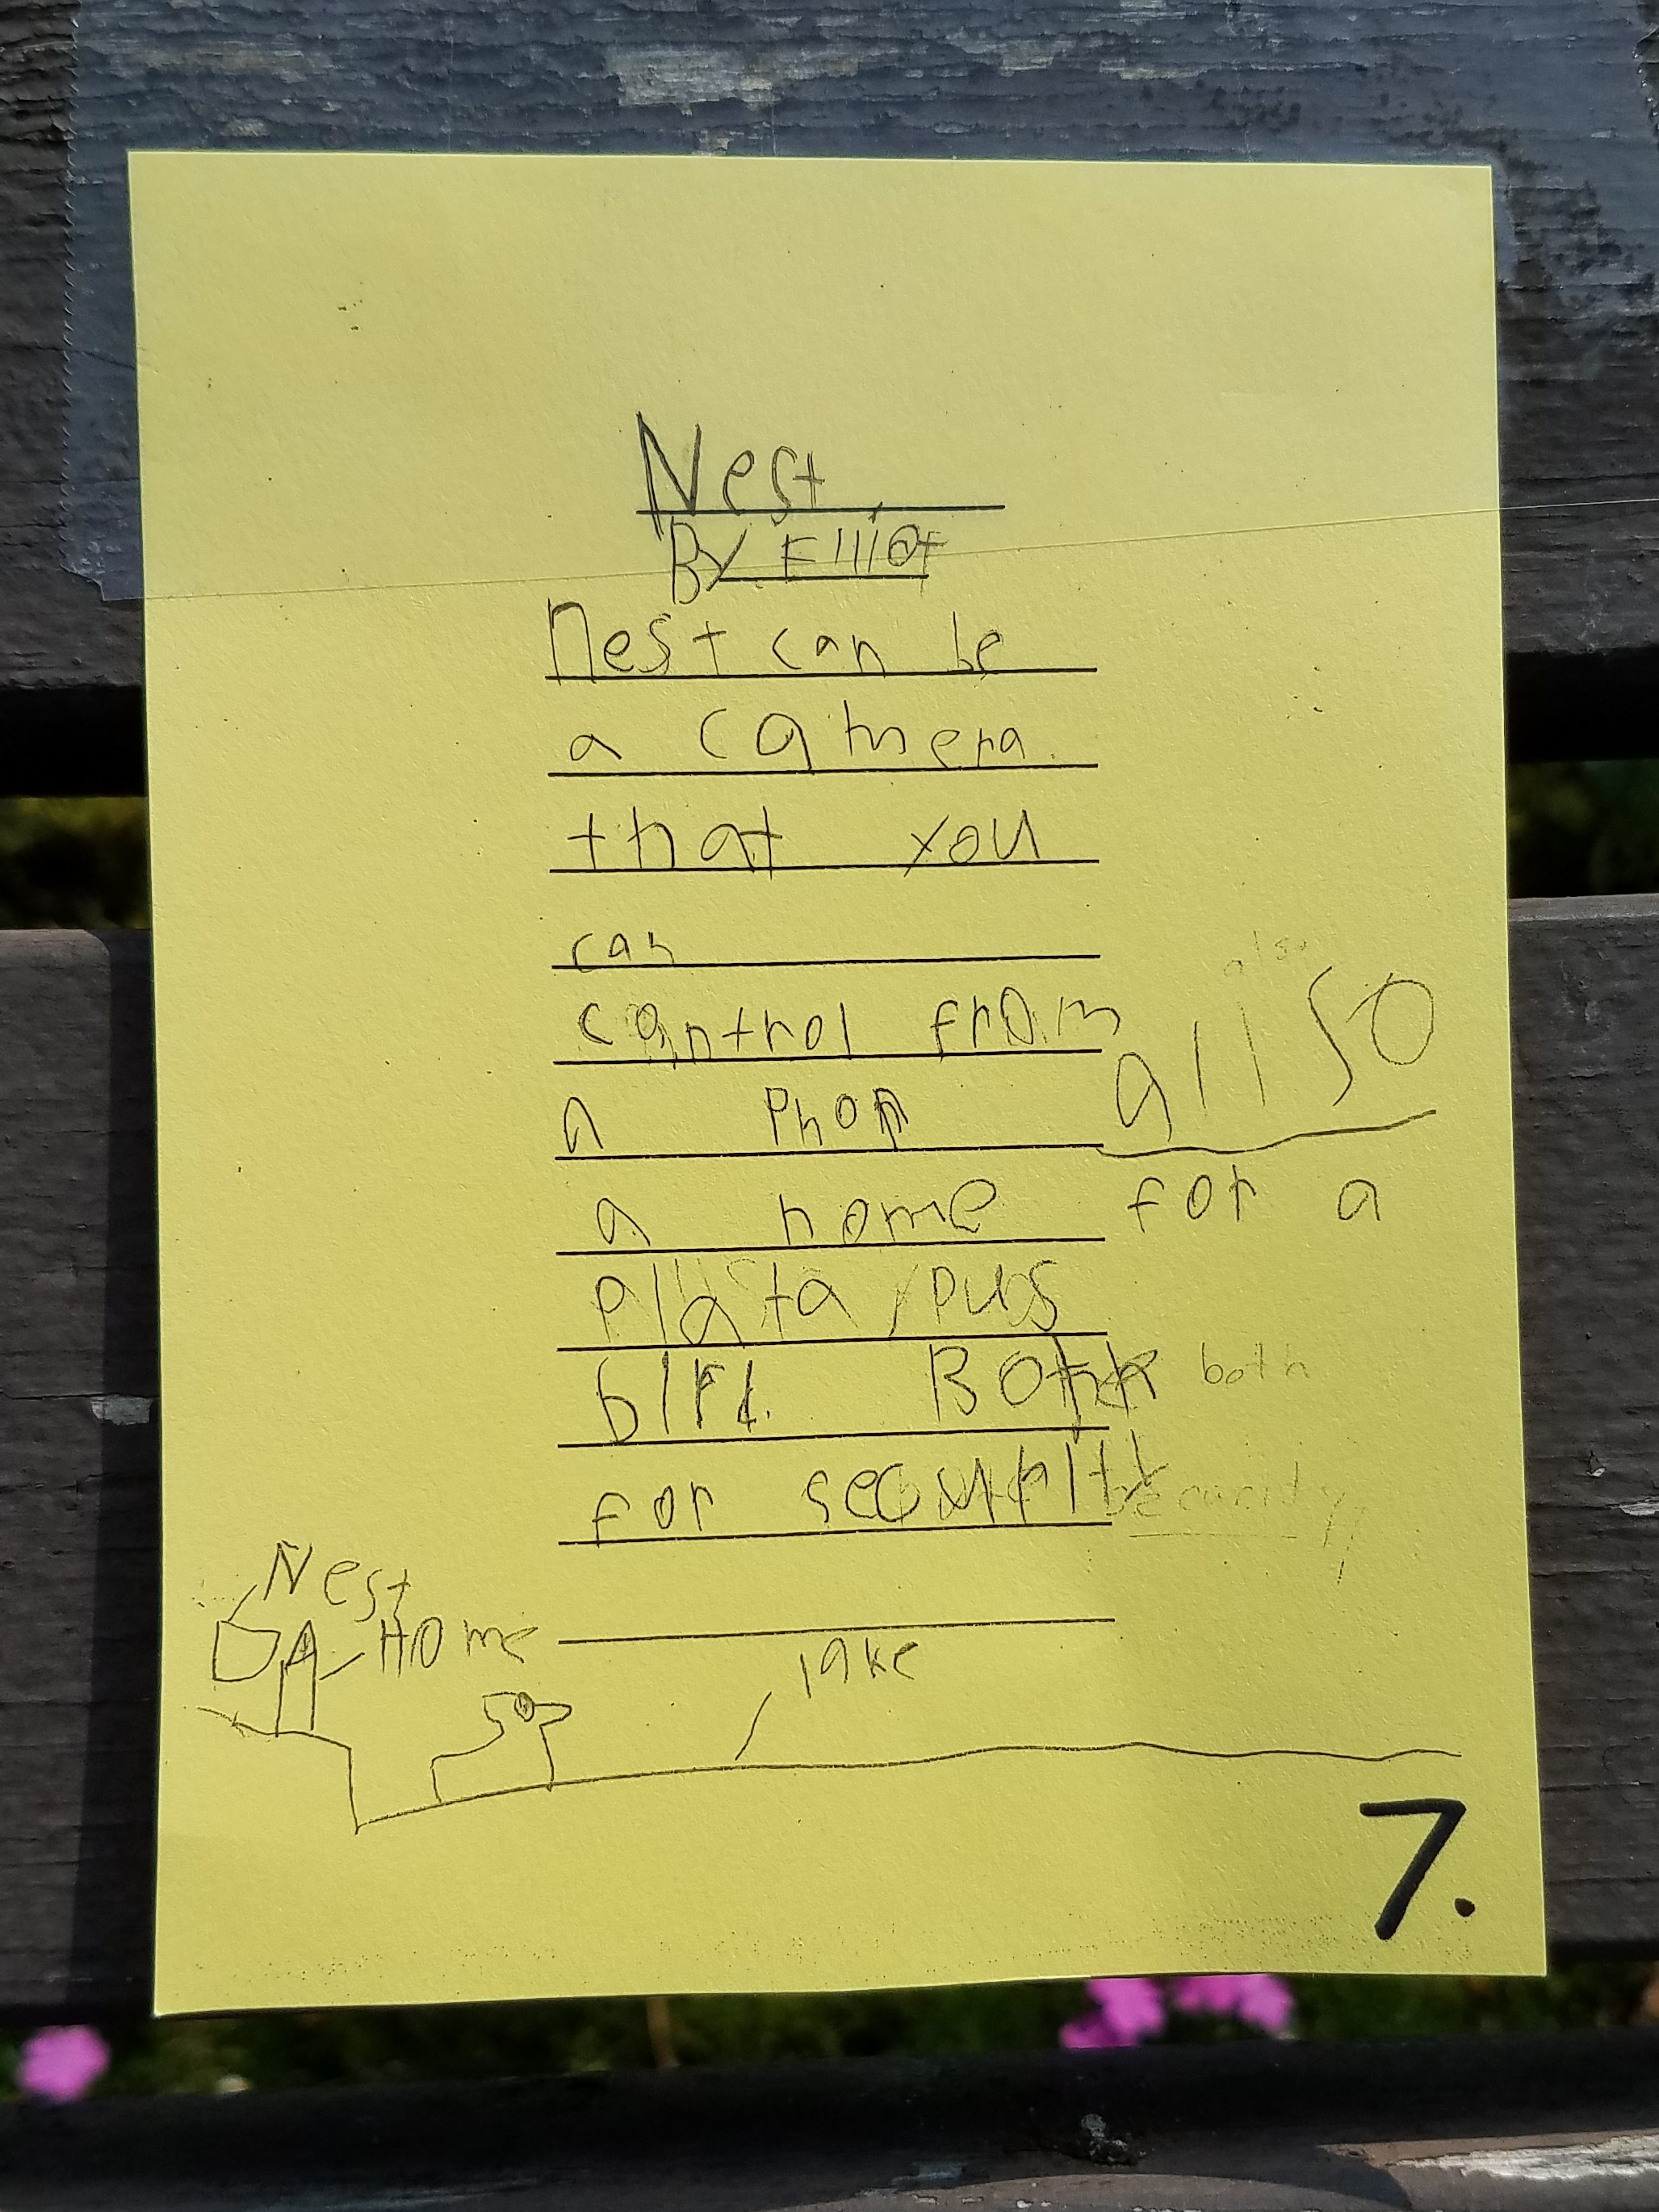 Nest
By Elliot
Nest can be
a camera
that you
can
control from
a Phon allso
also
a home for a
platapus
bird. Both both
for security security
Nest
Home
lake
7.